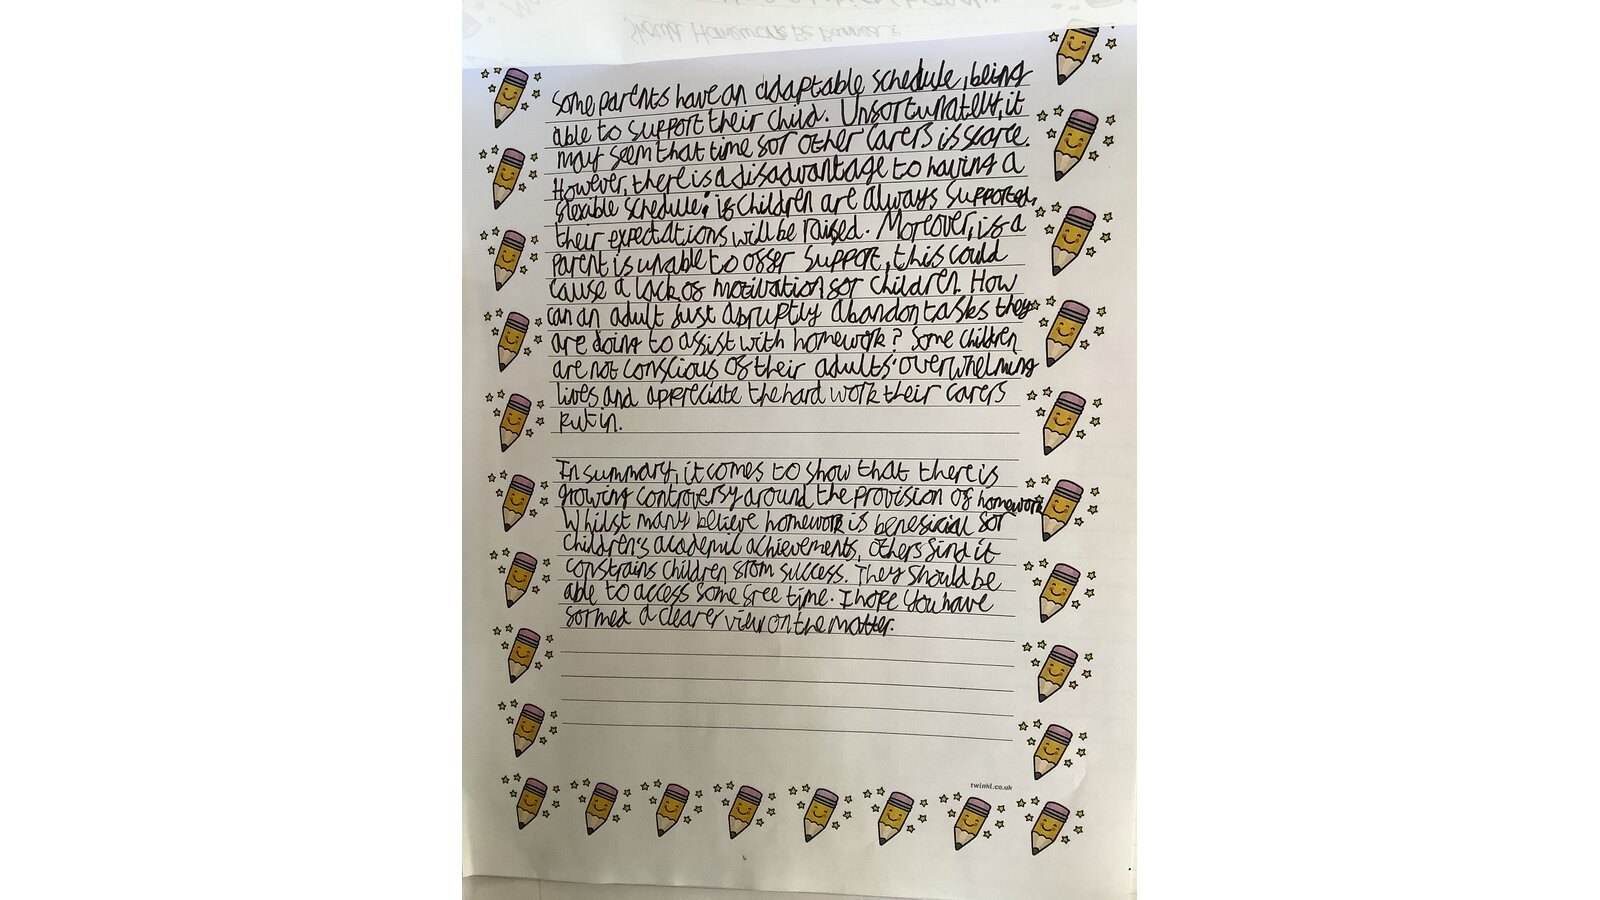 Some parents have an adaptable schedule, being
able to support their child. Unfortunately, it
may seem that time for other carers is scarce.
However, there is a disadvantage to having a
flexible schedule: if children are always supported,
their expectations will be raised. Moreover, if a
parent is unable to offer support, this could
cause a lack of motivation for children. How
can an adult just abruptly abandon tasks they
are doing to assist with homework? Some children
are not conscious of their adults' overwhelming
lives and appreciate the hard work their carers
put in.
In summary, it comes to show that there is
growing controversy around the provision of homework.
Whilst many believe homework is beneficial for
children's academic achievements, others find it
constrains children from success. They should be
able to access some free time. I hope you have
formed a clearer view on the matter.
twinkl.co.uk